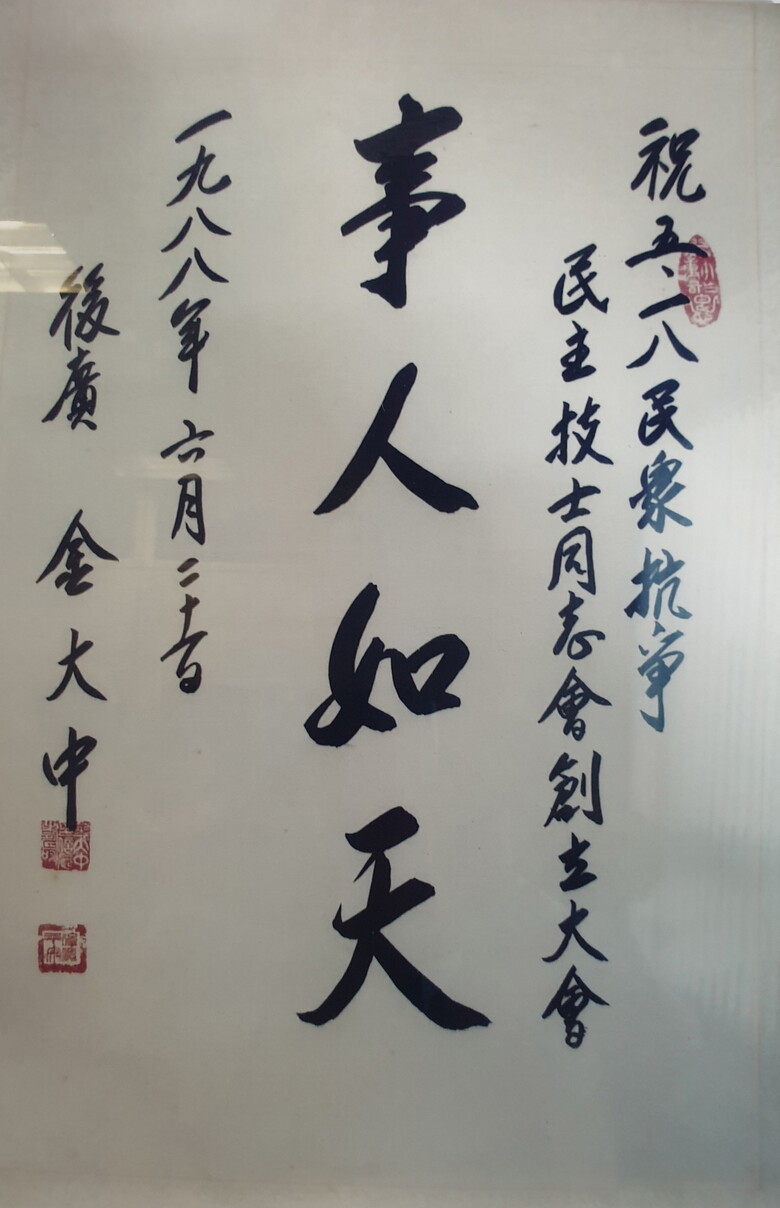 祝五·一八民衆抗争
民主技士同志會創立大會
事人如天
一九八八年 六月二十日
後廣 金大中